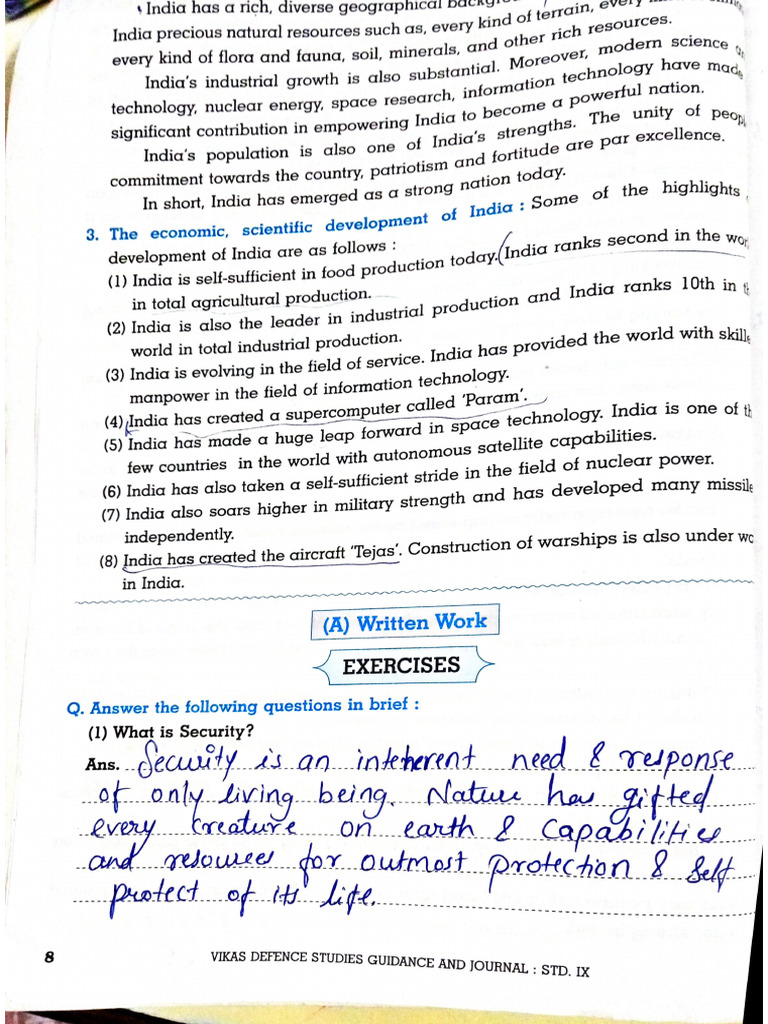 India has a rich, diverse geographical
India precious natural resources such as, every kind of terrain,
every kind of flora and fauna, soil, minerals, and other rich resources.
India's industrial growth is also substantial. Moreover, modern science
technology, nuclear energy, space research, information technology have made
significant contribution in empowering India to become a powerful nation.
India's population is also one of India's strengths. The unity of
commitment towards the country, patriotism and fortitude are par excellence.
In short, India has emerged as a strong nation today.
3. The economic, scientific development of India : Some of the highlights
development of India are as follows :
(1) India is self-sufficient in food production today. India ranks second in the
in total agricultural production.
(2) India is also the leader in industrial production and India ranks 10th in
world in total industrial production.
(3) India is evolving in the field of service. India has provided the world with
manpower in the field of information technology.
(4) India has created a supercomputer called 'Param'.
(5) India has made a huge leap forward in space technology. India is one of
few countries in the world with autonomous satellite capabilities.
(6) India has also taken a self-sufficient stride in the field of nuclear power.
(7) India also soars higher in military strength and has developed many missile
independently.
(8) India has created the aircraft 'Tejas'. Construction of warships is also under
in India.
(A) Written Work
EXERCISES
Q. Answer the following questions in brief :
(1) What is Security?
Ans. Security is an inteherent need & response
of only living being. Nature has gifted
every creature on earth & capabilities
and resources for outmost protection & self
protect of its life.
8 VIKAS DEFENCE STUDIES GUIDANCE AND JOURNAL : STD. IX